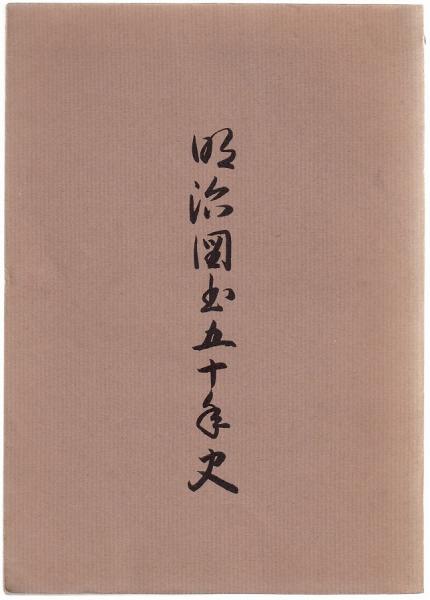 明治図书五十年史